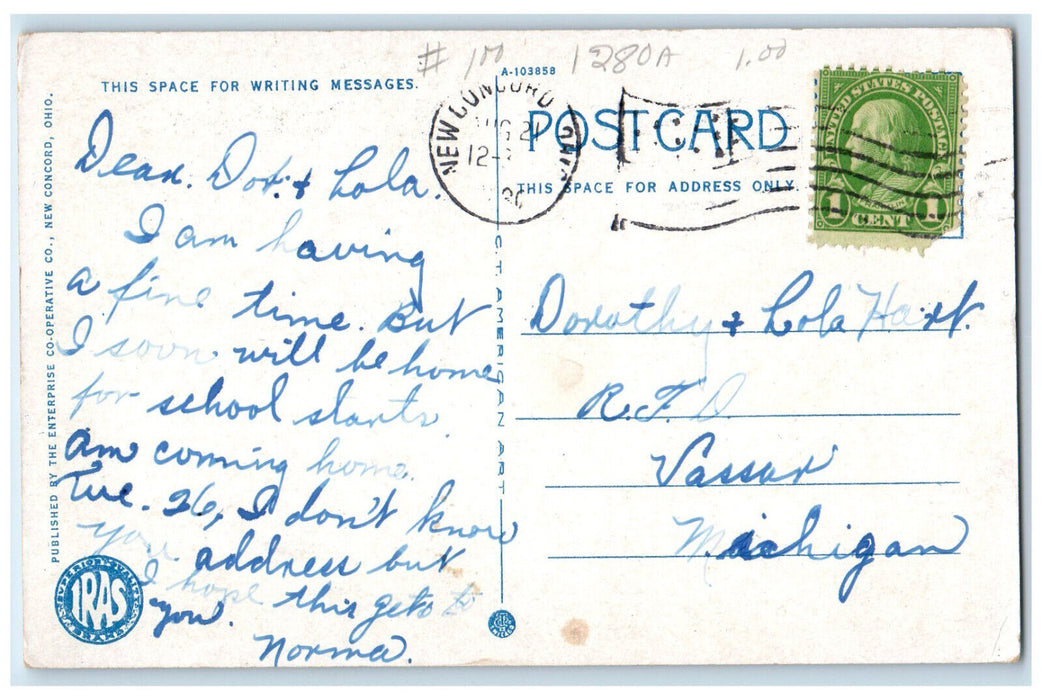 # 1.00 1280A 1.00
THIS SPACE FOR WRITING MESSAGES.
A-103858
NEW CONCORD
AUG 21
12-
POST CARD
THIS SPACE FOR ADDRESS ONLY.
UNITED STATES POSTAGE
1 CENT 1
PUBLISHED BY THE ENTERPRISE CO-OPERATIVE CO., NEW CONCORD, OHIO.
C.T. AMERICAN ART
Dear. Dot. & Lola.
I am having
a fine time. But
I soon will be home
for school starts.
am coming home.
Tue. 26, I don't know
you address but
I hope this gets to
you.
Norma.
Dorothy & Lola Hart.
R.F.D.
Vassar
Michigan
SUPERIOR QUALITY
IRAS
BRAND